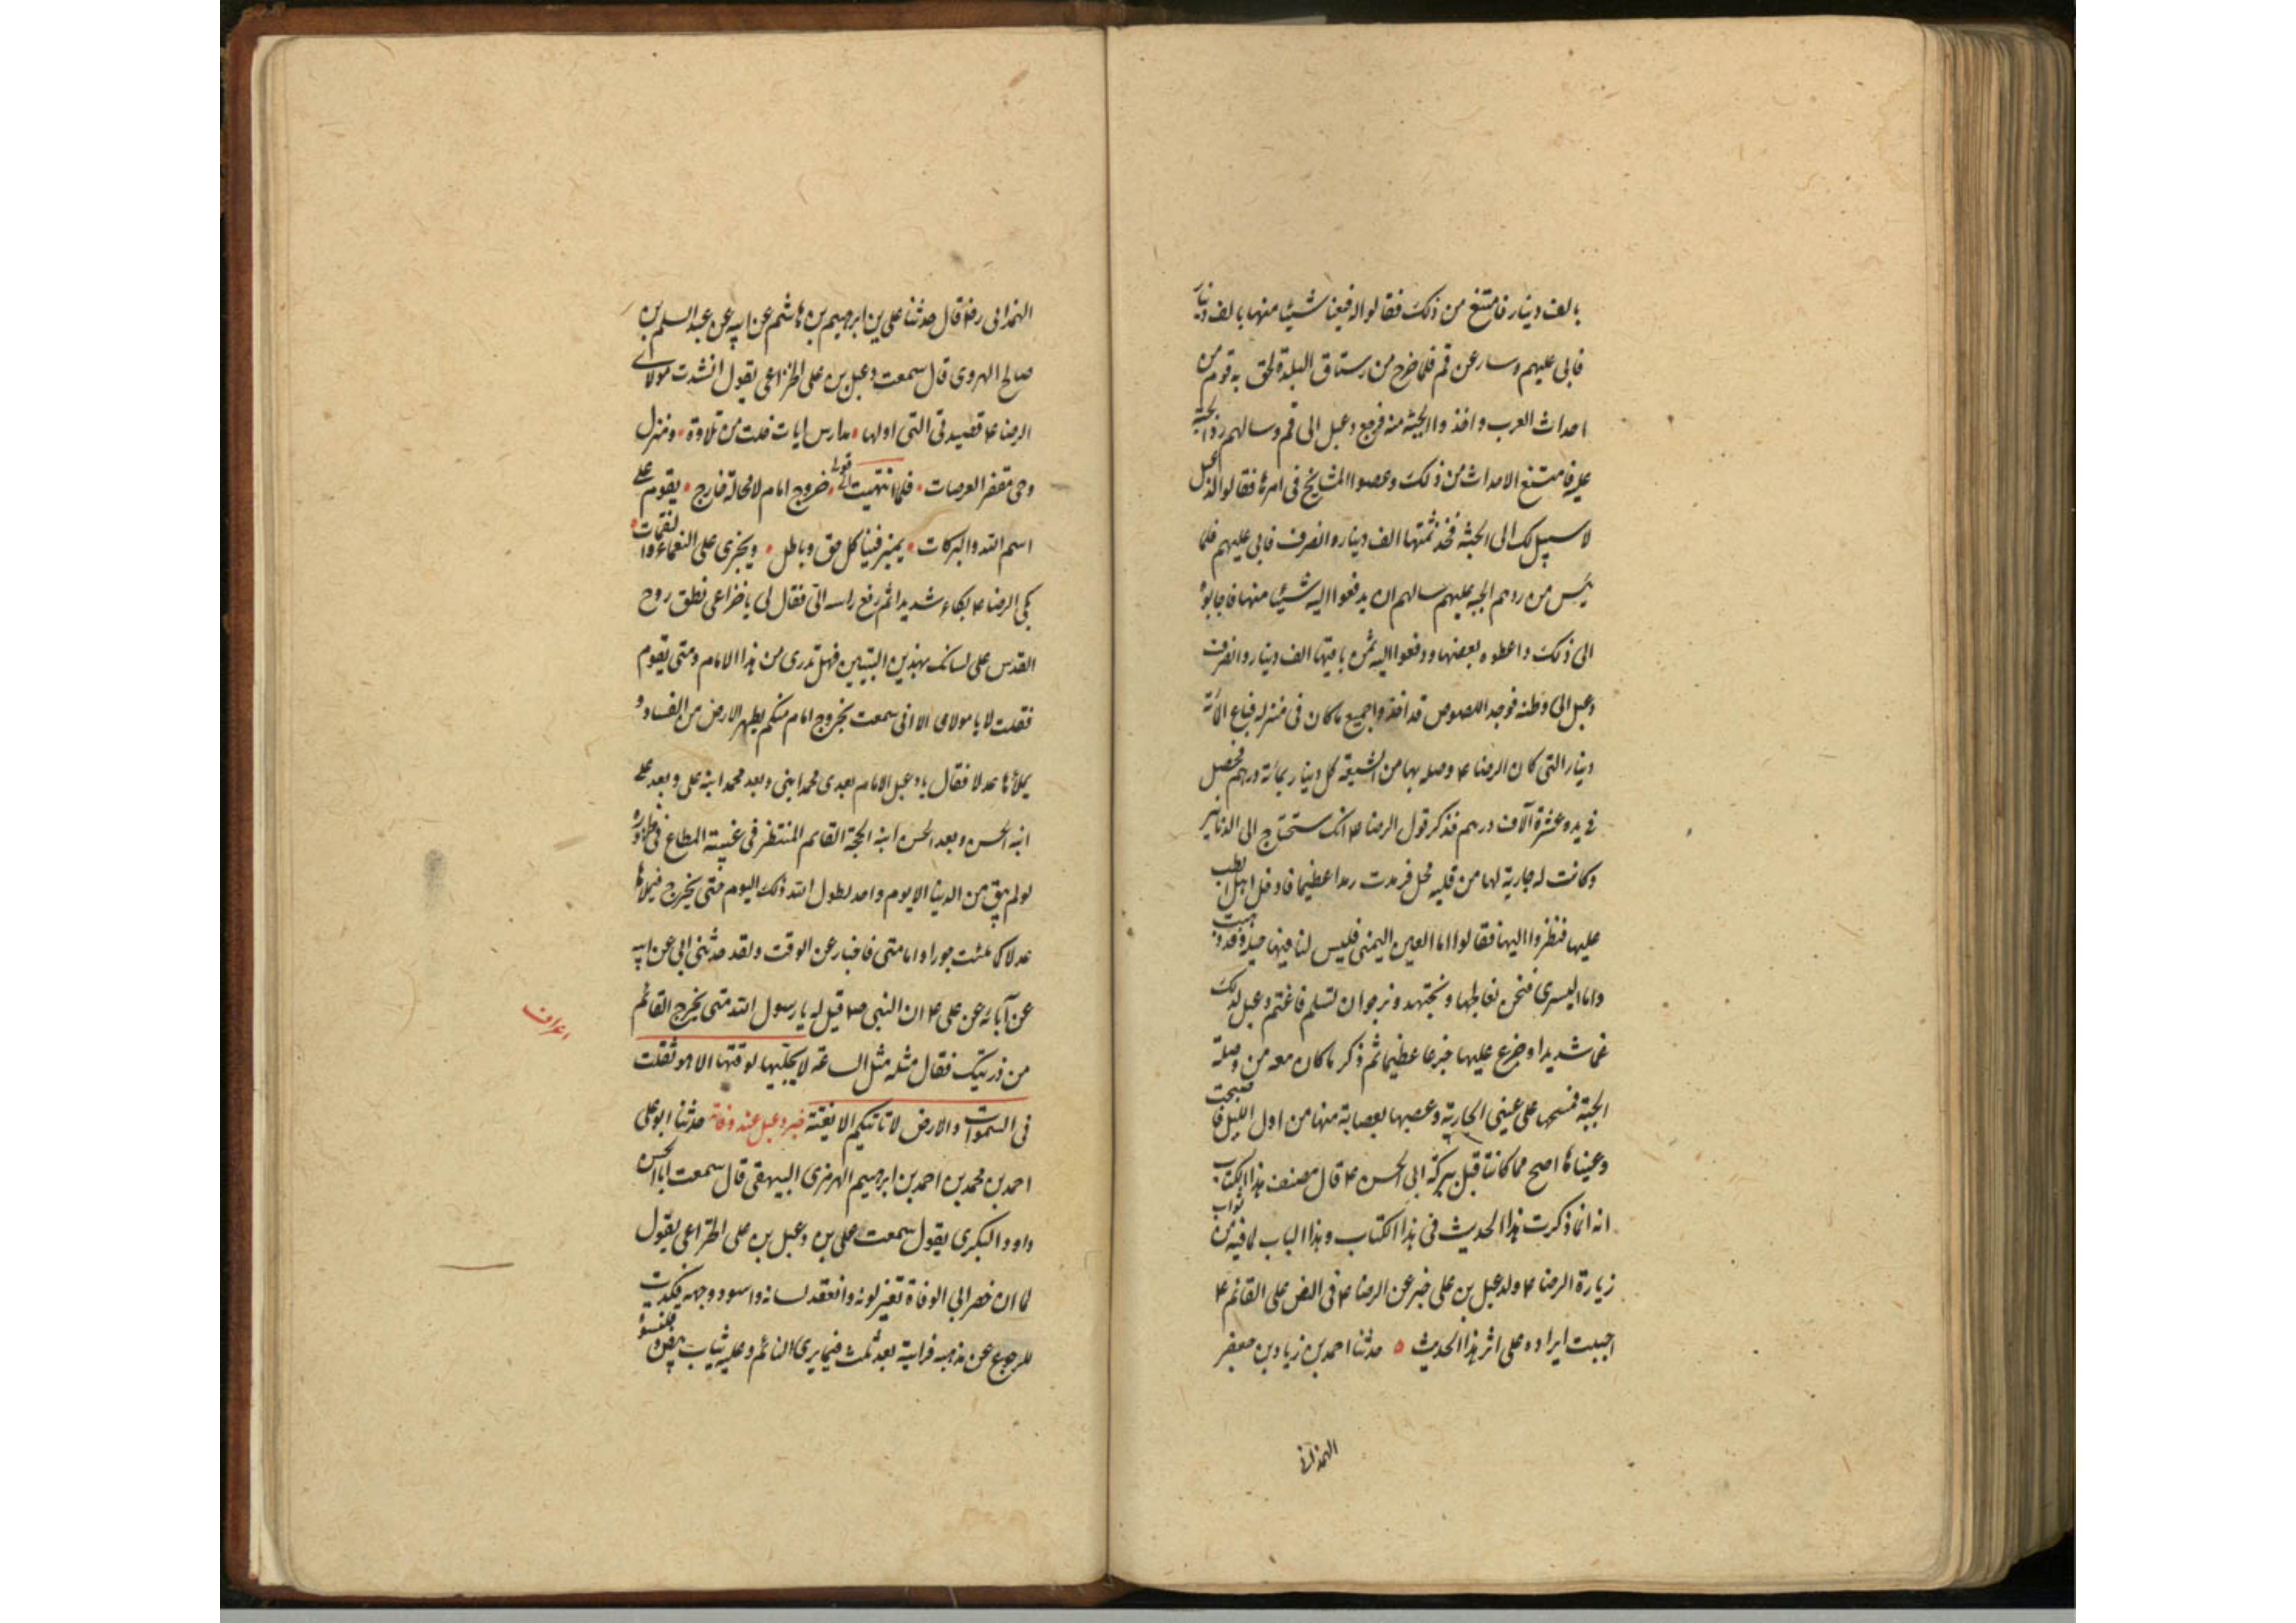 بالف دينار فامتنع من ذلك فقالوا له فبعنا شيئا منها بالف دينار
فابى عليهم وسار عن قم فلما خرج من رستاق البلدة لحق به قوم من
احداث العرب واخذوا الجبة منه فرجع دعبل الى قم وسالهم رد الجبة
عليه فامتنع الاحداث من ذلك وعصوا المشايخ في امرها فقالوا لدعبل
لا سبيل لك الى الجبة فخذ ثمنها الف دينار وانصرف فابى عليهم فلما
يئس من ردهم الجبه عليهم سالهم ان يدفعوا اليه شيئا منها فاجابوه
الى ذلك واعطوه بعضها ودفعوا اليه ثمن باقيها الف دينار وانصرف
دعبل الى وطنه فوجد اللصوص قد اخذوا جميع ما كان في منزله فباع المائة
دينار التي كان الرضا ع وصله بها من الشيعة كل دينار بمائة درهم فحصل
في يده عشرة آلاف درهم فذكر قول الرضا ع انك ستحتاج الى الدنانير
وكانت له جارية لها من قلبه محل فرمدت رمدا عظيما فادخل اهل الطب
عليها فنظروا اليها فقالوا اما العين اليمنى فليس لنا فيها حيلة وقد ذهبت
واما اليسرى فنحن نعالجها ونجتهد ونرجو ان تسلم فاغتم دعبل لذلك
غما شديدا وجزع عليها جزعا عظيما ثم ذكر ما كان معه من وصلة
الجبة فمسحها على عيني الجارية وعصبها بعصابة منها من اول الليل فاصبحت
وعيناها اصح مما كانتا قبل ببركة ابي الحسن ع قال مصنف هذا الكتاب
انه انما ذكرت هذا الحديث في هذا الكتاب وهذا الباب لما فيه من ثواب
زيارة الرضا ع ولدعبل بن علي خبر عن الرضا ع في النص على القائم ع
احببت ايراده على اثر هذا الحديث ه حدثنا احمد بن زياد بن جعفر
الهمداني
الهمداني رض قال حدثنا علي بن ابرهيم بن هاشم عن ابيه عن عبد السلم بن
صالح الهروي قال سمعت دعبل بن علي الخزاعي يقول انشدت مولاى
الرضا ع قصيدتي التي اولها مدارس ايات خلت من تلاوة ومنزل
وحى مقفر العرصات فلما انتهيت الى قولي خروج امام لا محالة خارج يقوم على
اسم الله والبركات يميز فينا كل حق وباطل ويجزى على النعماء والنقمات
بكى الرضا ع بكاء شديدا ثم رفع راسه الي فقال لي يا خزاعي نطق روح
القدس على لسانك بهذين البيتين فهل تدرى من هذا الامام ومتى يقوم
فقلت لا يا مولاى الا اني سمعت بخروج امام منكم يطهر الارض من الفساد و
يملاها عدلا فقال يا دعبل الامام بعدى محمد ابني وبعد محمد ابنه علي وبعد علي
ابنه الحسن وبعد الحسن ابنه الحجة القائم المنتظر في غيبته المطاع في ظهوره
لو لم يبق من الدنيا الا يوم واحد لطول الله ذلك اليوم حتى يخرج فيملاها
عدلا كما ملئت جورا واما متى فاخبار عن الوقت ولقد حدثني ابي عن ابيه
عن آبائه عن علي ع ان النبي ص قيل له يا رسول الله متى يخرج القائم
اعراف
من ذريتك فقال مثله مثل الساعة لا يجليها لوقتها الا هو ثقلت
في السموات والارض لا تاتيكم الا بغتة خبر دعبل عند وفاته حدثنا ابو علي
احمد بن محمد بن احمد بن ابرهيم الهرمزى البيهقي قال سمعت ابا الحسن
داود البكرى يقول سمعت علي بن دعبل بن علي الخزاعي يقول
لما ان حضر ابي الوفاة تغير لونه وانعقد لسانه واسود وجهه فكدت
للرجوع عن مذهبه فرايته بعد ثلث فيما يرى النائم وعليه ثياب بيض وقلنسوة